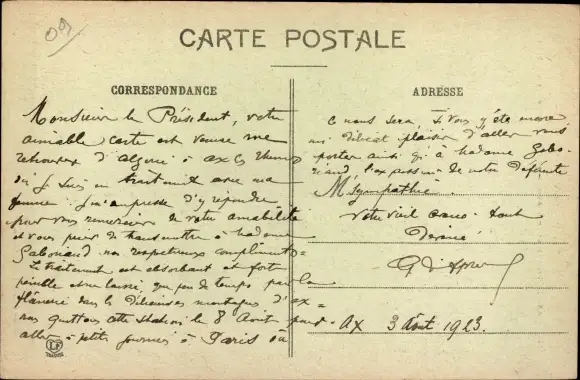 CARTE POSTALE
CORRESPONDANCE
Monsieur le Président, votre
aimable carte est venue me
retrouver d'Algérie à Ax les Thermes
où je suis en traitement avec ma
femme. j'ai m'empresse d'y répondre
pour vous remercier de votre amabilité
et vous prier de transmettre à Madame
Gabouaud nos respectueux compliments =
Le traitement est absorbant et fort
pénible et ne laisse que peu de temps pour la
flânerie dans les délicieuses montagnes d'Ax =
nous quittons cette station le 8 Août pour
aller à petites journées à Paris où
LF
ADRESSE
ce nous sera, si vous y êtes encore
un plaisir d'aller vous
porter ainsi qu'à Madame Gabo
uaud, l'ex de notre déférente
sympathie.
Votre vieil tout
Dévoué
Ax 3 Août 1923.